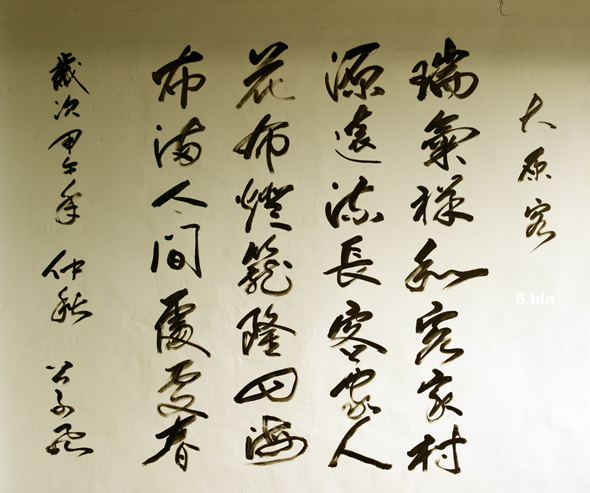 大原客
瑞氣祥和客家村
源遠流長客家人
花布燈籠隆四海
布滿人間處處春
歲次甲午年 仲秋
S hin